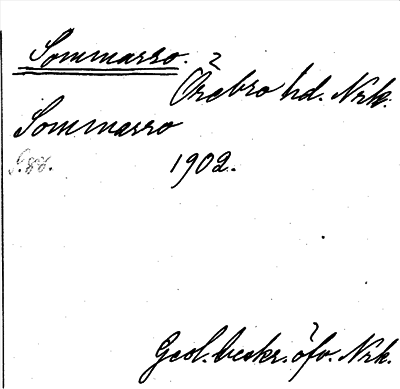 Sommarro.
Örebro hd. Nrk.
Sommarro
1902.
Geol. beskr. öfv. Nrk.